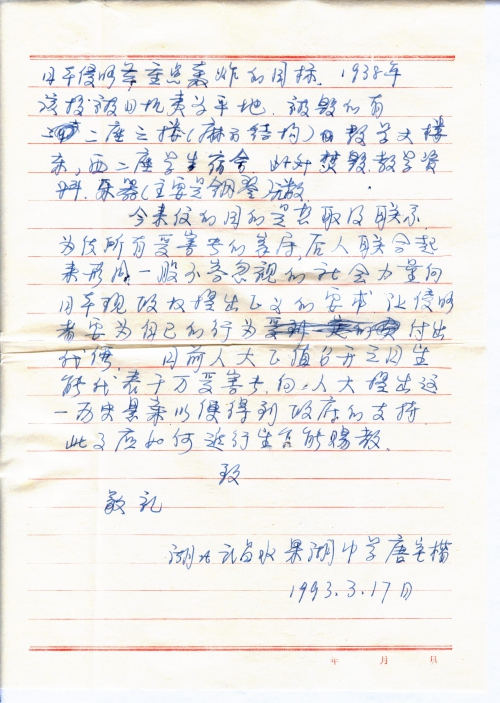 日军侵略者重点轰炸的目标. 1938年
该校被日机夷为平地. 被毁的有
二座三楼(麻石结构)的教学大楼
东,西二座学生宿舍 此外焚毁教学资
料.乐器(主要是钢琴)无数.
今来信的目的是想取得联系
为使所有受害者的家属,后人联合起
来形成一股不容忽视的社会力量向
日本现政权提出正义的要求 让侵略
者要为自己的行为 付出
代价. 目前人大正值召开之日望
能代表千万受害者,向人大提出这
一历史悬案以便得到政府的支持.
此事应如何进行望能赐教.
致
敬礼
湖北武昌水果湖中学唐
1993.3.17日
年 月 日